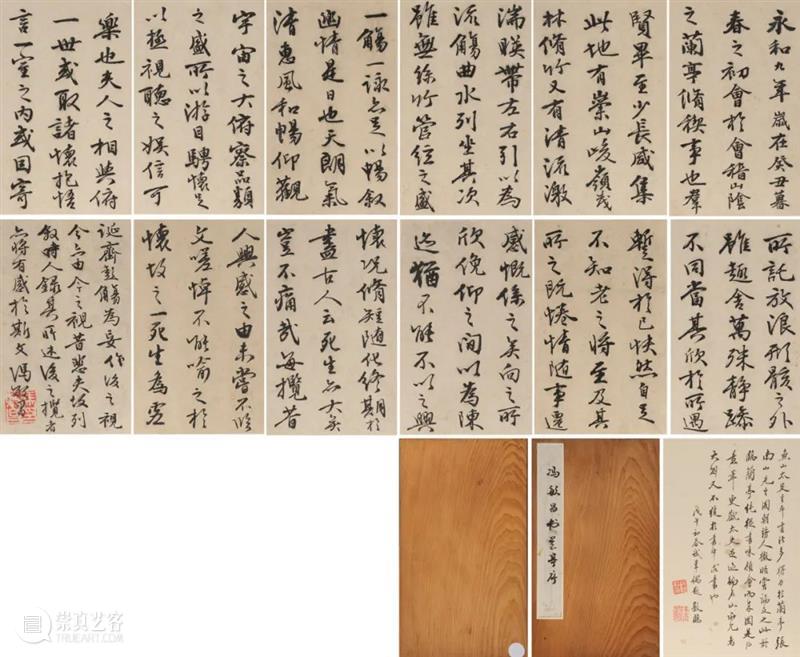 永和九年歲在癸丑暮
春之初會於會稽山陰
之蘭亭脩稧事也羣
賢畢至少長咸集
此地有崇山峻嶺茂
林脩竹又有清流激
湍暎帶左右引以為
流觴曲水列坐其次
雖無絲竹管弦之盛
一觴一詠亦足以暢敘
幽情是日也天朗氣
清惠風和暢仰觀
宇宙之大俯察品類
之盛所以游目騁懷足
以極視聽之娛信可
樂也夫人之相與俯
一世或取諸懷抱悟
言一室之內或因寄
所託放浪形骸之外
雖趣舍萬殊靜躁
不同當其欣於所遇
暫得於己怏然自足
不知老之將至及其
所之既惓情隨事遷
感慨係之矣向之所
欣俛仰之間以為陳
迹猶不能不以之興
懷況脩短隨化終期於
盡古人云死生亦大矣
豈不痛哉每攬昔
人興感之由未嘗不臨
文嗟悼不能喻之於
懷故之一死生為虛
誕齊彭觴為妄作後之視
今亦由今之視昔悲夫故列
敘時人錄其所述後之攬者
亦將有感於斯文馮敏昌
馮敏昌書蘭亭序
魚山太史平生書法多得力於蘭亭張
南山先生國朝詩人徵略嘗論及之此冊
臨蘭亭純從書味領會
戊午初春
崇真艺客